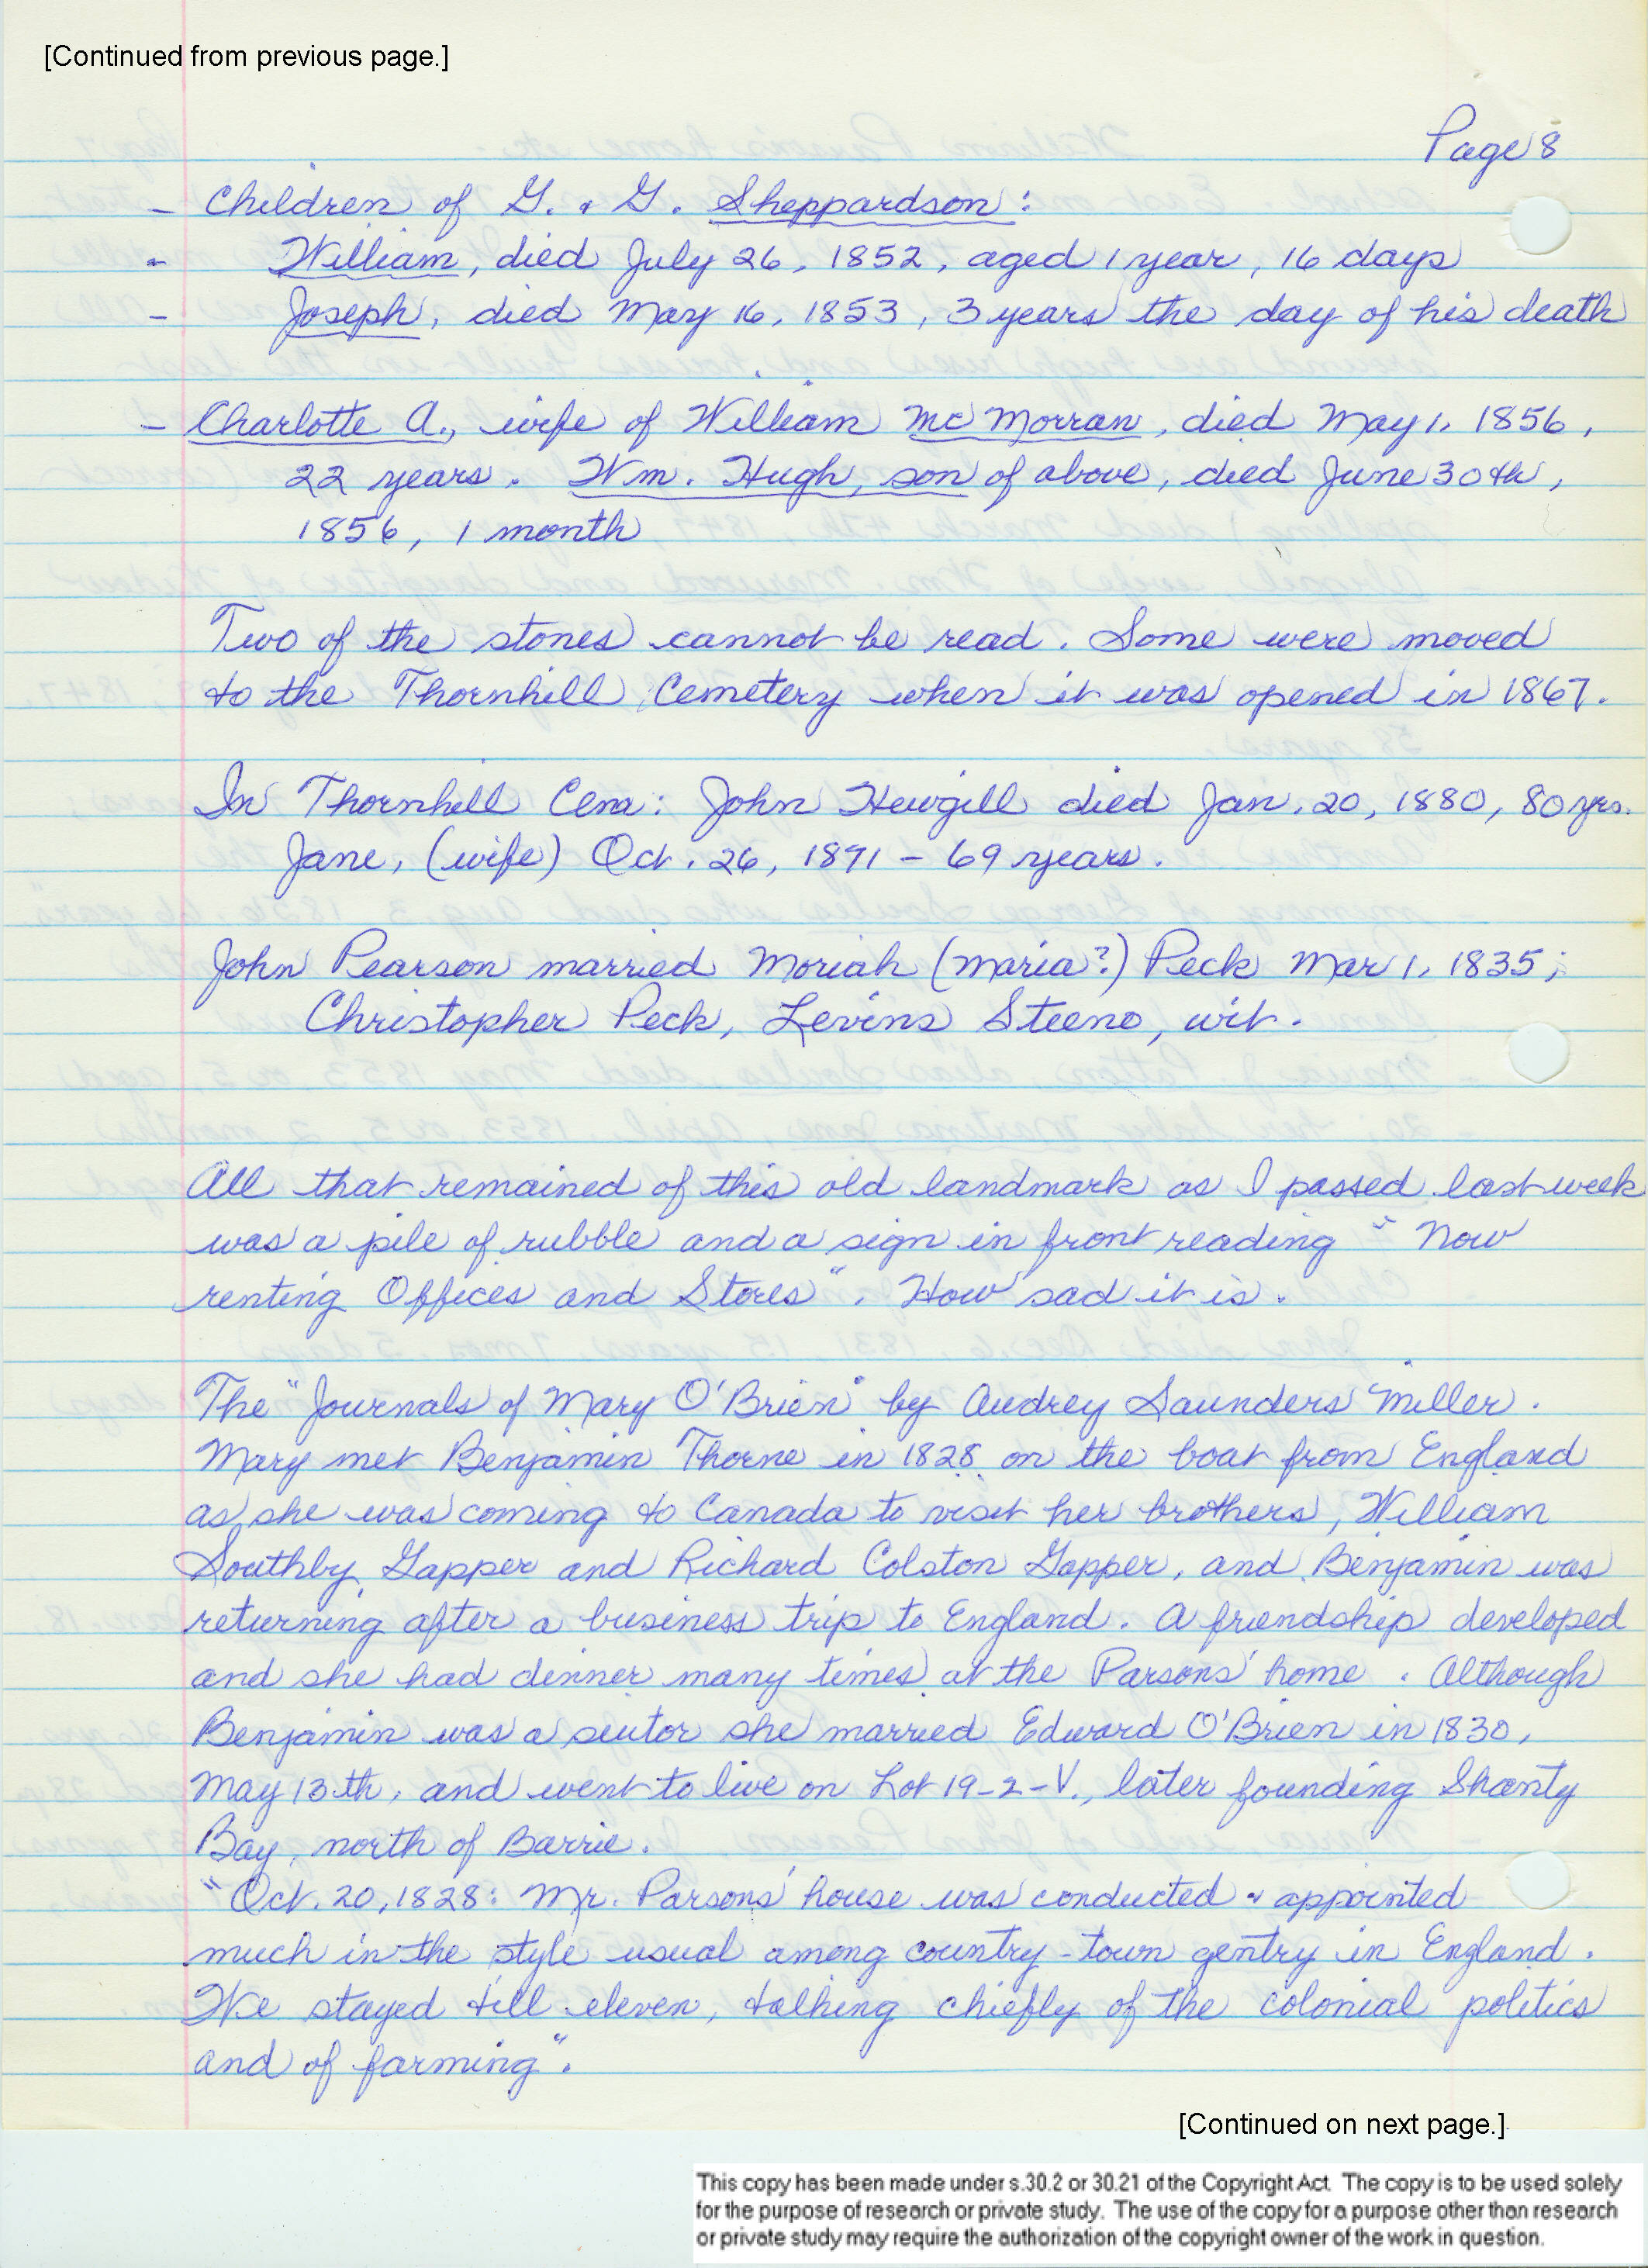 [Continued from previous page.]
Page 8
- Children of G. & G. Sheppardson:
- William, died July 26, 1852, aged 1 year, 16 days
- Joseph, died May 16, 1853, 3 years the day of his death
- Charlotte A., wife of William McMorran, died May 1, 1856,
22 years. Wm. Hugh, son of above, died June 30th,
1856, 1 month
Two of the stones cannot be read. Some were moved
to the Thornhill Cemetery when it was opened in 1867.
In Thornhill Cem: John Hewgill died Jan. 20, 1880, 80 yrs.
Jane, (wife) Oct. 26, 1891 - 69 years.
John Pearson married Moriah (Maria?) Peck Mar 1, 1835;
Christopher Peck, Levins Steeno, wit.
All that remained of this old landmark as I passed last week
was a pile of rubble and a sign in front reading "Now
renting Offices and Stores". How sad it is.
The "Journals of Mary O'Brien" by Audrey Saunders Miller.
Mary met Benjamin Thorne in 1828 on the boat from England
as she was coming to Canada to visit her brothers, William
Southby Gapper and Richard Colston Gapper, and Benjamin was
returning after a business trip to England. A friendship developed
and she had dinner many times at the Parsons' home. Although
Benjamin was a suitor she married Edward O'Brien in 1830,
May 13th, and went to live on Lot 19-2-V., later founding Shanty
Bay, north of Barrie.
"Oct. 20, 1828: Mr. Parsons' house was conducted & appointed
much in the style usual among country-town gentry in England.
We stayed till eleven, talking chiefly of the colonial politics
and of farming".
[Continued on next page.]
This copy has been made under s.30.2 or 30.21 of the Copyright Act. The copy is to be used solely
for the purpose of research or private study. The use of the copy for a purpose other than research
or private study may require the authorization of the copyright owner of the work in question.